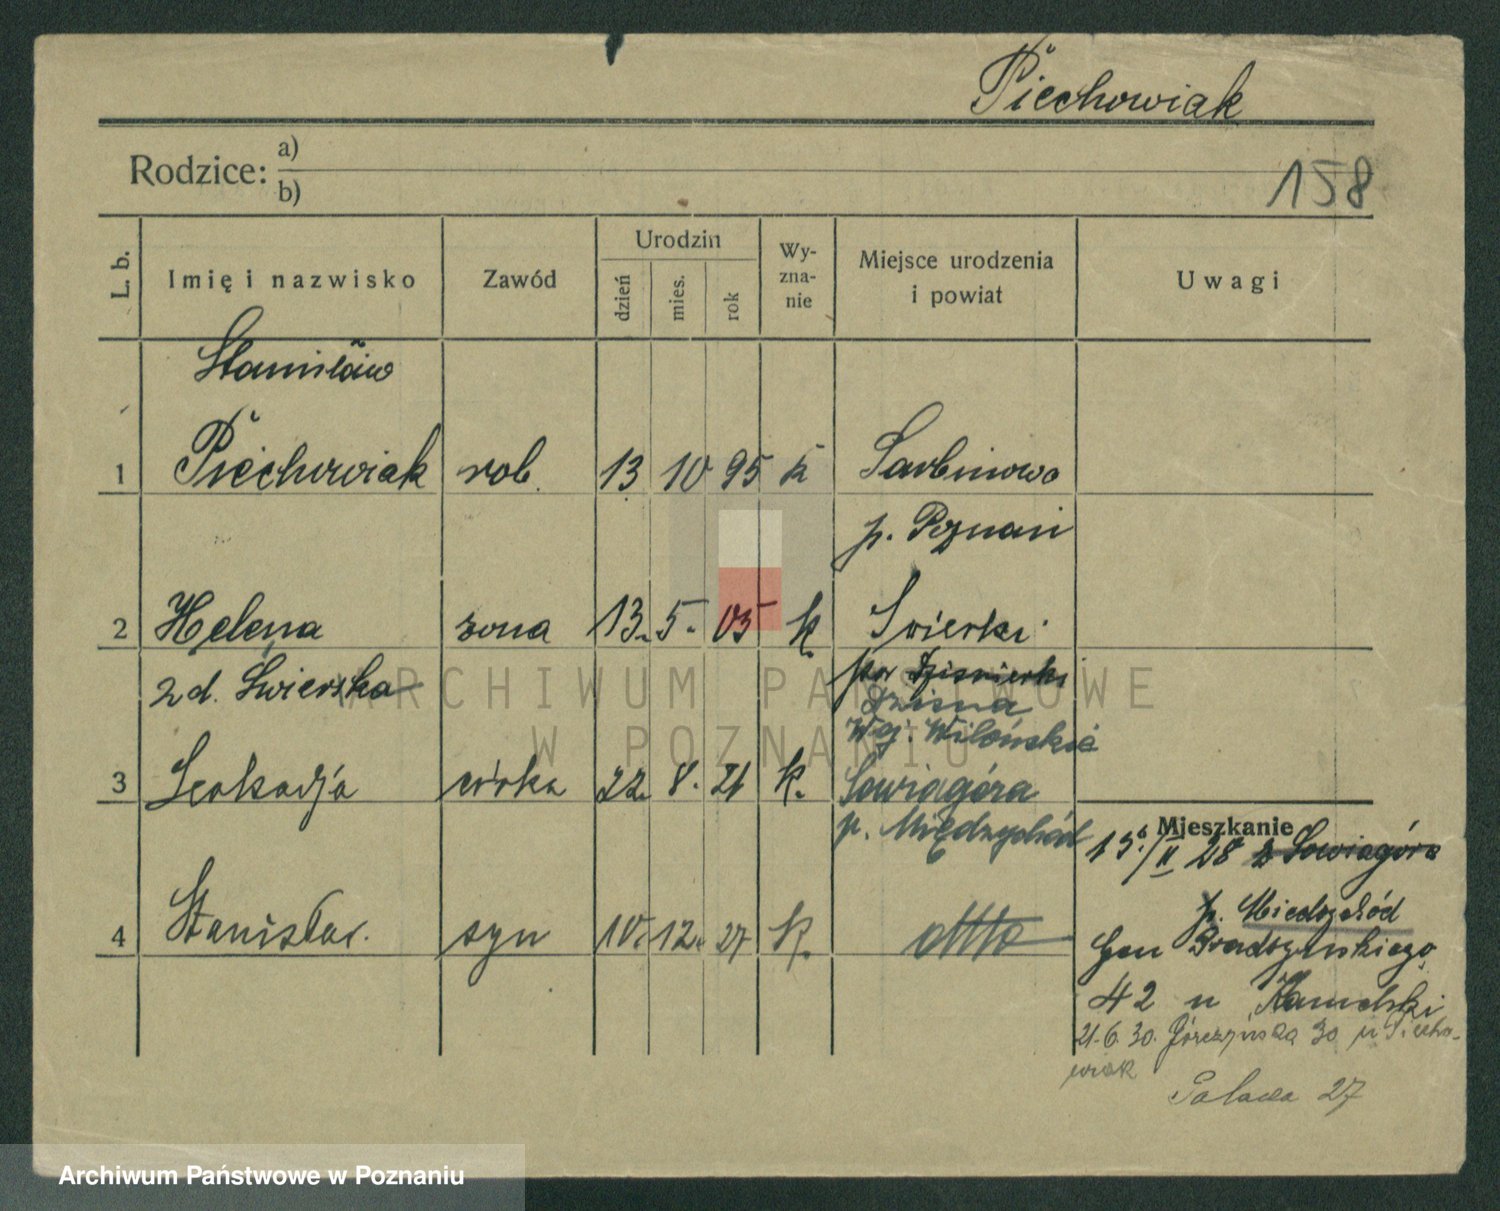 Piechowiak
Rodzice: a)
b)
158
L. b.
Imię i nazwisko
Zawód
Urodzin
dzień
mies.
rok
Wy-
zna-
nie
Miejsce urodzenia
i powiat
Uwagi
Stanisław
1 Piechowiak rob. 13 10 95 k
Sarbinowo
p. Poznań
2 Helena żona 13. 5. 05 k.
zd. Świerska
3 Leokadja córka 22. 8. 21 k.
Dzisna
Woj. Wileńskie
Sowiagóra
p. Międzychód
4 Stanisław. syn 10. 12. 27 k.
otto
Mieszkanie
15./II 28 z Sowiagóra
p. Miedzychód
Gen Prądzyńskiego
42 u
21.6.30. Górczyńska 30 u Piecho-
wiak
27
ARCHIWUM PAŃSTWOWE
W POZNANIU
Archiwum Państwowe w Poznaniu